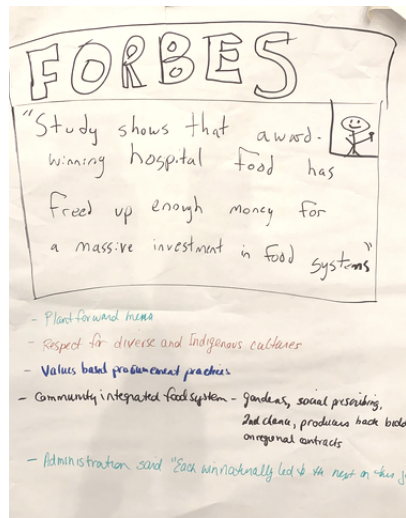 FORBES
"Study shows that award-
winning hospital food has
freed up enough money for
a massive investment in food systems"
- Plant forward menu
- Respect for diverse and Indigenous cultures
- Values based procurement practices
- Community integrated food system - gardens, social prescribing,
2nd chance, producers back
on regional contracts
- Administration said "Each win naturally led to the next on this